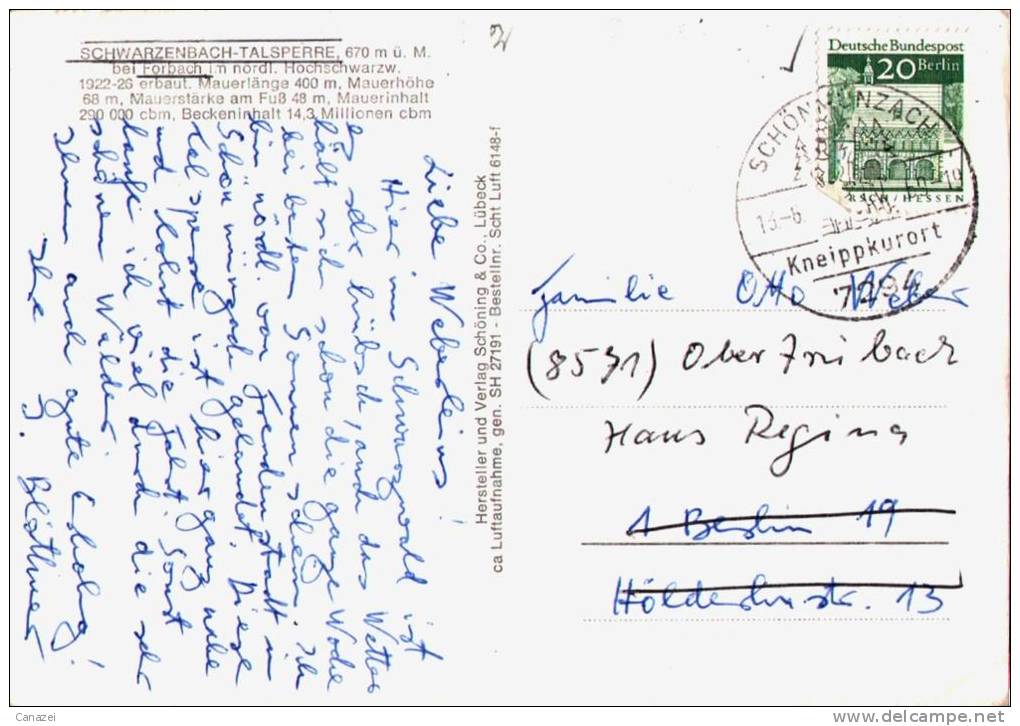 SCHWARZENBACH-TALSPERRE, 670 m ü. M.
bei Forbach im nördl. Hochschwarzw.
1922-26 erbaut. Mauerlänge 400 m, Mauerhöhe
68 m, Mauerstärke am Fuß 48 m, Mauerinhalt
290 000 cbm, Beckeninhalt 14,3 Millionen cbm
Liebe Weberleins!
Hier im Schwarzwald ist
es sehr hübsch, auch das Wetter
hält sich schon die ganze Woche
bei bestem Sonnenschein. Ich
bin nördl. von Freudenstadt in
Schönmünzach gelandet. Diese
Talsperre ist hier ganz nahe
und lohnt die Fahrt. Sonst
laufe ich viel durch die sehr
schönen Wälder.
Ihnen auch gute Erholung!
Ihre
Hersteller und Verlag Schöning & Co., Lübeck
ca Luftaufnahme, gen. SH 27191 - Bestellnr. Scht Luft 6148-f
Deutsche Bundespost
20 Berlin
LORSCH/HESSEN
SCHÖNMÜNZACH
13.-6.
Kneippkurort
7294
Familie Otto Weber
(8531) Ober
Haus Regina
1 Berlin 19
Hölderlinstr. 13
Canazei